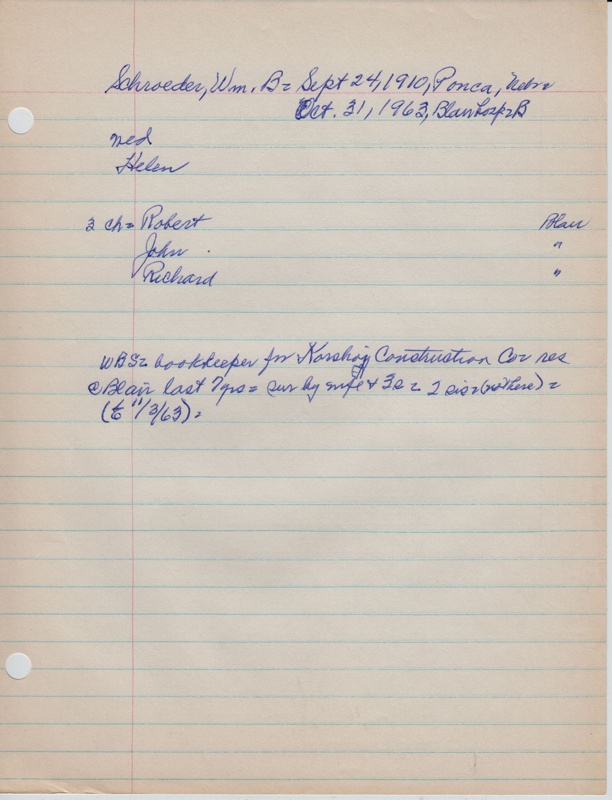 Schroeder, Wm. B= Sept 24, 1910, Ponca, Nebr=
Oct. 31, 1963, Blair Hosp=B
med
Helen
3 ch= Robert Blair
John "
Richard "
WBS= bookkeeper for Korshoj Construction Co= res
@ Blair last 7 yrs= sur by wife & 3s= 2 sis= (not here) =
(E 11/3/63) =